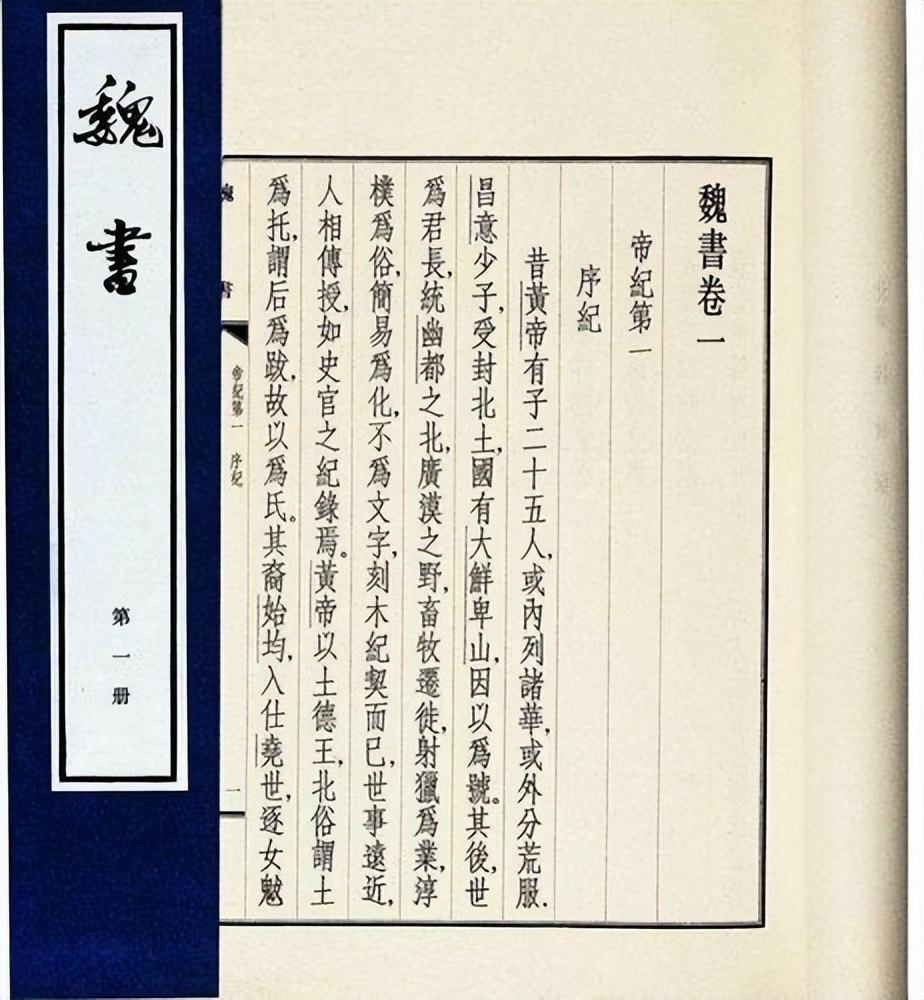 魏書
第一册
魏書卷一
帝紀第一
序紀
昔黃帝有子二十五人,或內列諸華,或外分荒服.
昌意少子,受封北土,國有大鮮卑山,因以爲號。其後,世
爲君長,統幽都之北,廣漠之野,畜牧遷徙,射獵爲業,淳
樸爲俗,簡易爲化,不爲文字,刻木紀契而已,世事遠近,
人相傳授,如史官之紀錄焉。黃帝以土德王,北俗謂土
爲托,謂后爲跋,故以爲氏。其裔始均,入仕堯世,逐女魃
帝紀第一 序紀
一